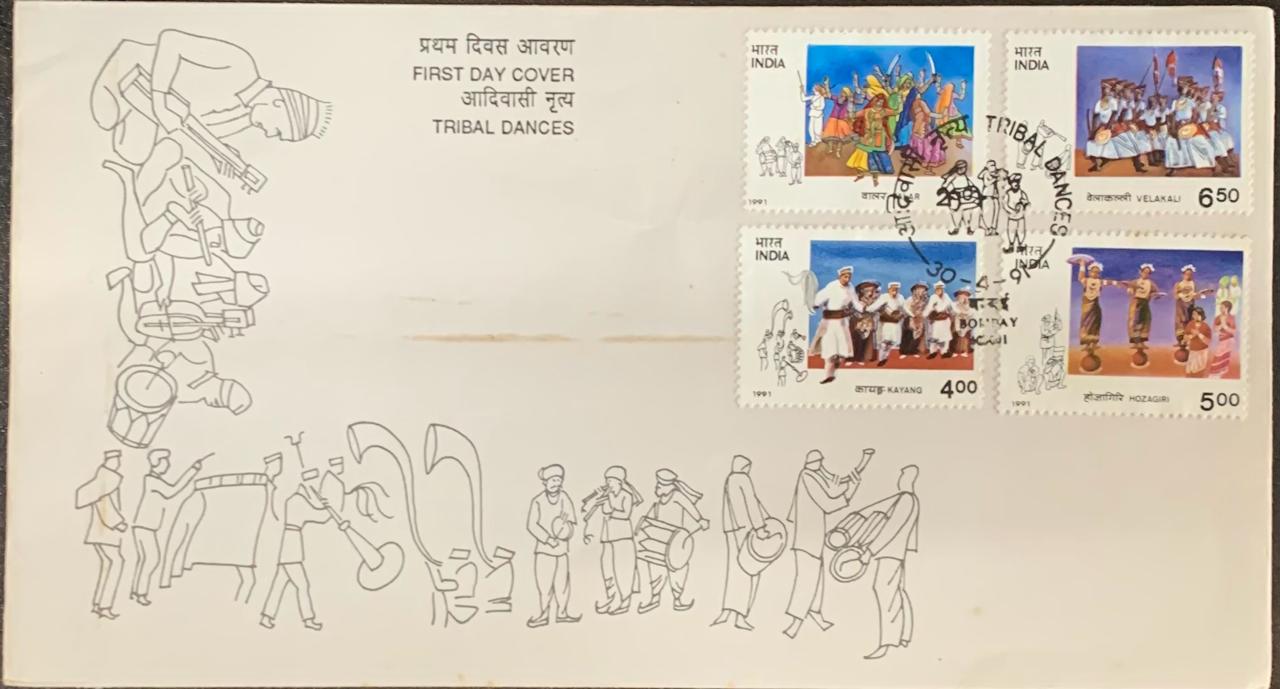 प्रथम दिवस आवरण
FIRST DAY COVER
आदिवासी नृत्य
TRIBAL DANCES
भारत
INDIA
वालर
250
1991
भारत
INDIA
वेलाकल्ली VELAKALI
650
भारत
INDIA
कायङ-KAYANG
400
1991
भारत
INDIA
होजागिरि HOZAGIRI
500
1991
नृत्य TRIBAL DANCES
30-4-91
BOMBAY